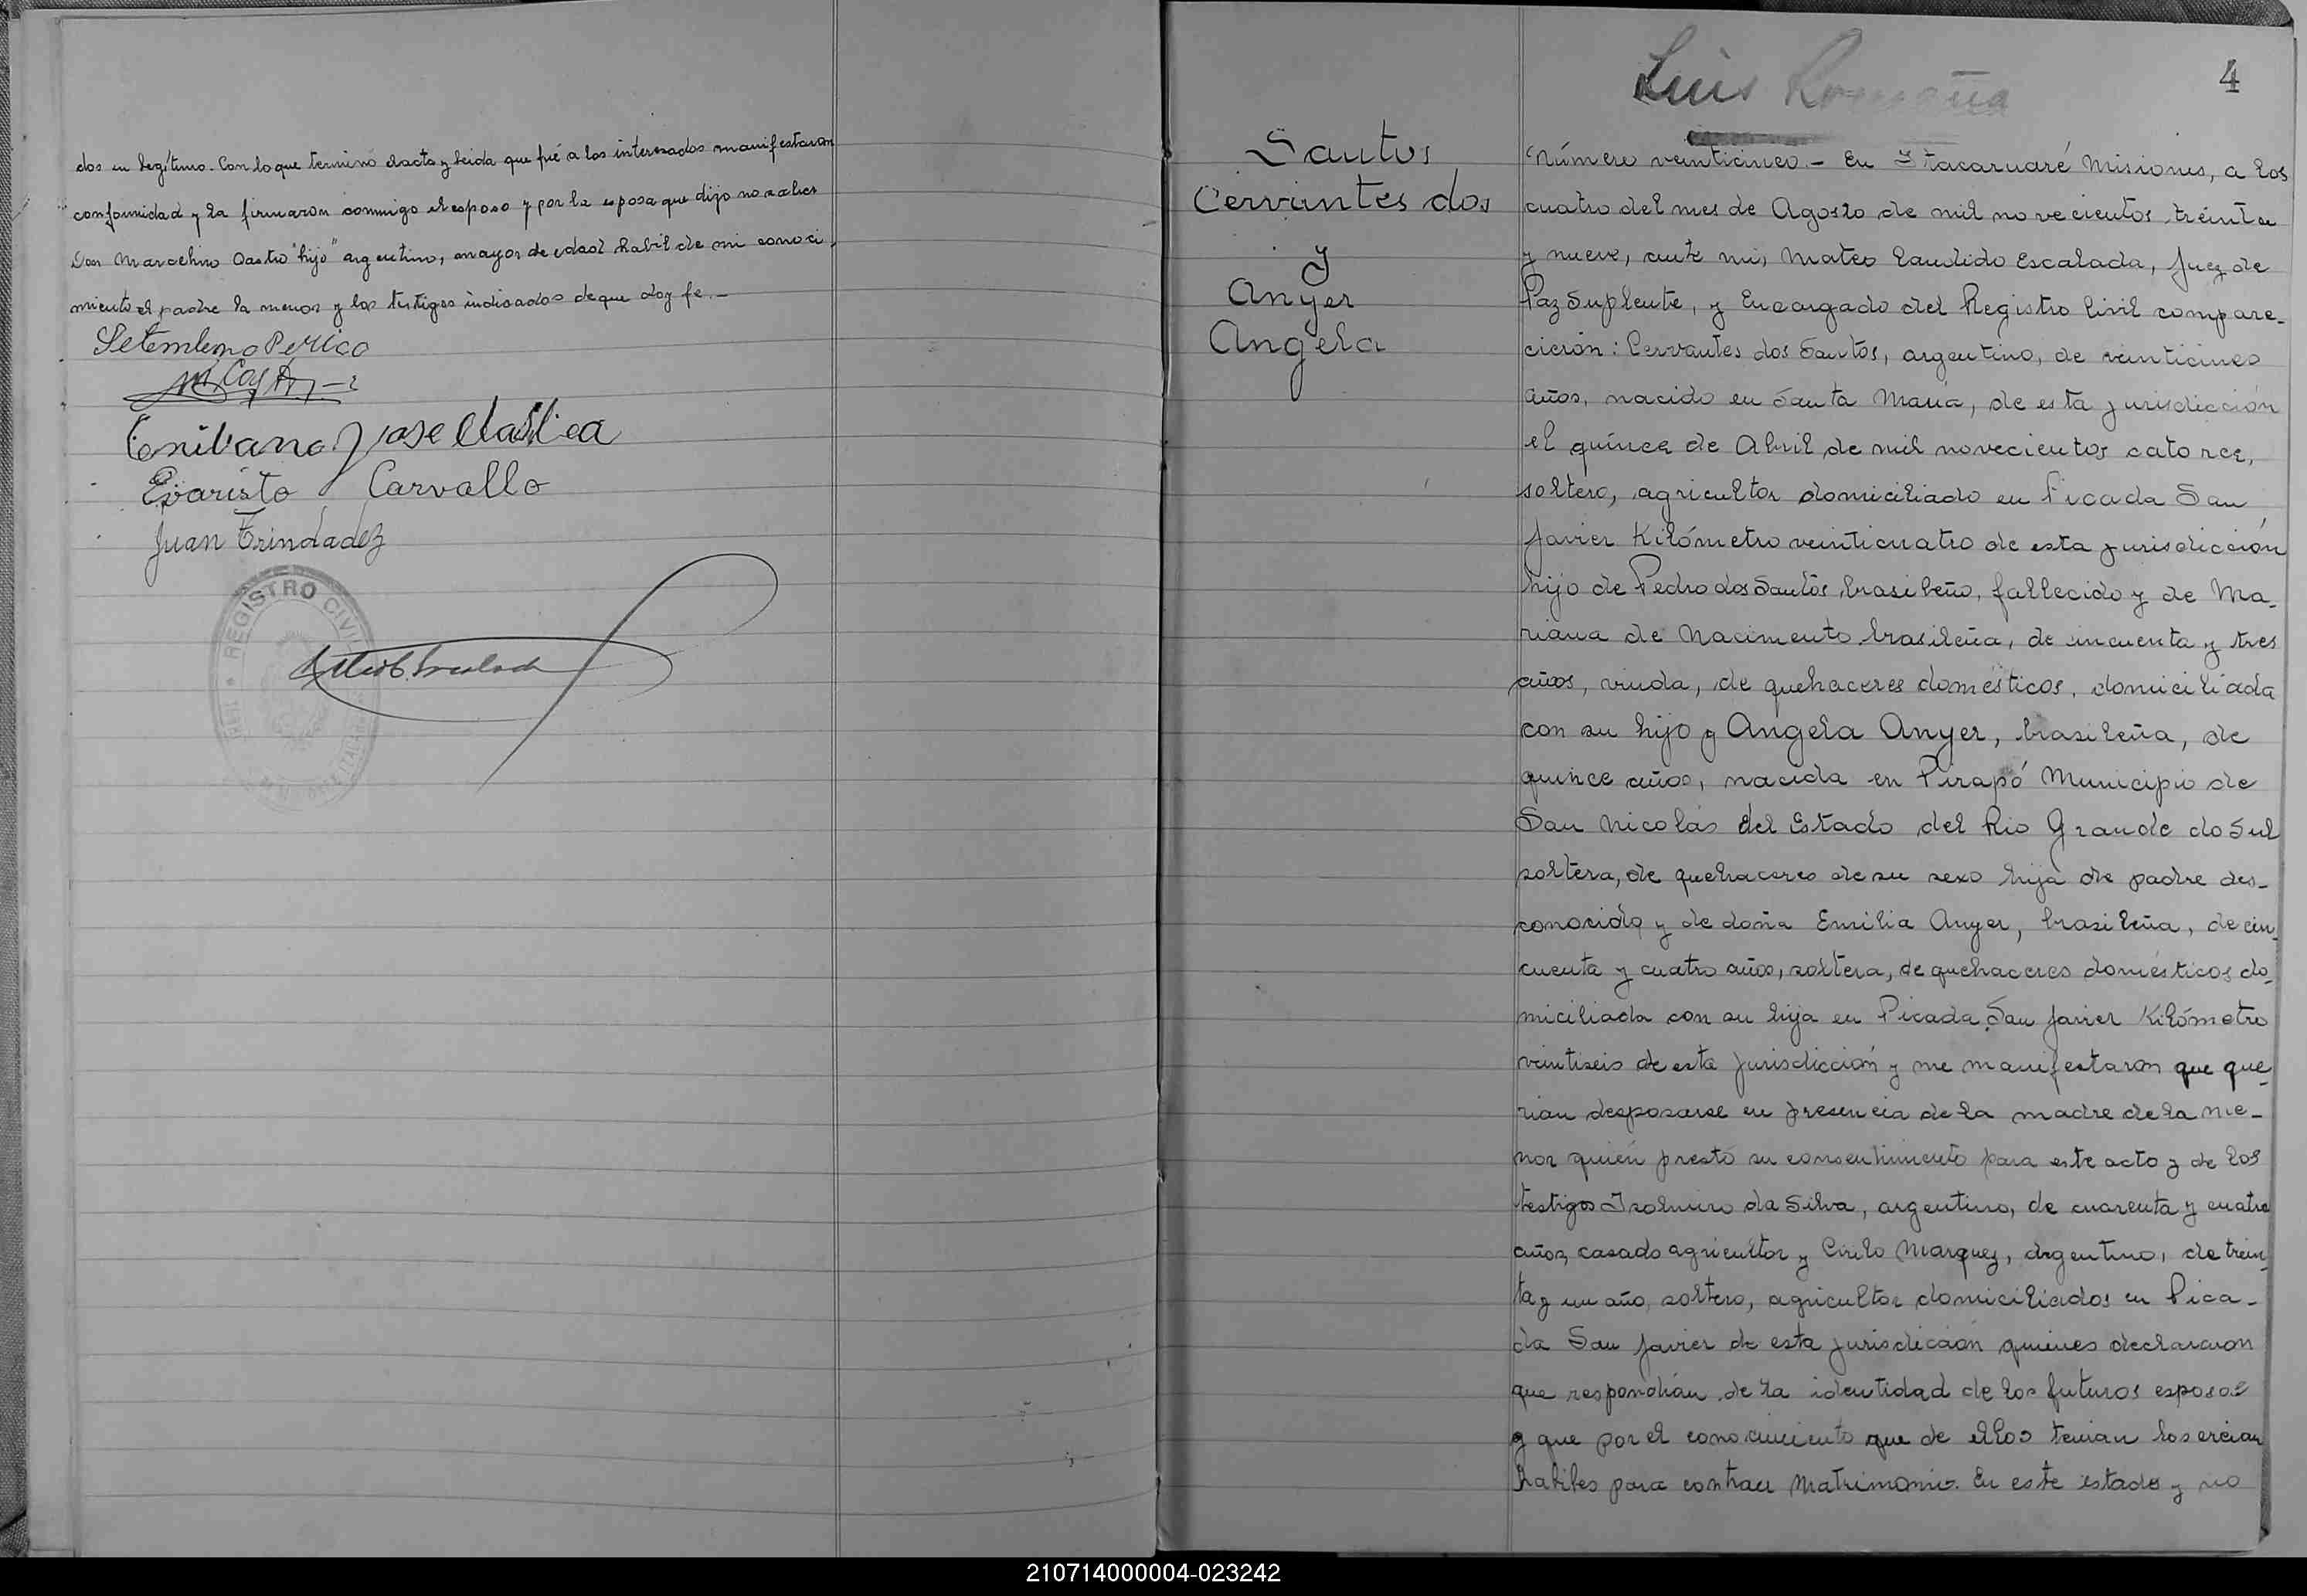 dos en legítimo. Con lo que terminó el acto y leida que fué a los interesados manifestaron
conformidad y la firmaron conmigo el esposo y por la esposa que dijo no saber
Don Marcelino Castro "hijo" argentino, mayor de edad habil de mi conoci
miento el padre la menor y los testigos indicados de que doy fe.-
Setembrino Perico
M. Castro
Jose
Evaristo Carvallo
Juan Trindadez
REGISTRO CIVIL
Luis Romaña
4
Santos
Cervantes dos
y
Anyer
Angela
Número veinticinco.- En Itacaruaré Misiones, a los
cuatro del mes de Agosto de mil novecientos treinta
y nueve, ante mi, Mateo Candido Escalada, Juez de
Paz Suplente, y Encargado del Registro Civil compare-
cieron: Cervantes dos Santos, argentino, de veinticinco
años, nacido en Santa María, de esta jurisdicción
el quince de Abril de mil novecientos catorce,
soltero, agricultor domiciliado en Picada San
Javier Kilómetro veinticuatro de esta jurisdicción
hijo de Pedro dos Santos, brasileño, fallecido y de Ma-
riana de Nacimento brasileña, de incuenta y tres
años, viuda, de quehaceres domésticos, domiciliada
con su hijo y Angela Anyer, brasileña, de
quince años, nacida en Pirapó Municipio de
San Nicolás del Estado del Rio Grande do Sul
soltera, de quehaceres de su sexo hija de padre des-
conocido y de doña Emilia Anyer, brasileña, de cin-
cuenta y cuatro años, soltera, de quehaceres domésticos do-
miciliada con su hija en Picada San Javier Kilómetro
veintiseis de esta jurisdicción y me manifestaron que que-
rían desposarse en presencia de la madre de la me-
nor quién prestó su consentimiento para este acto y de los
testigos Isolmiro da Silva, argentino, de cuarenta y cuatro
años, casado agricultor y Cirilo Marquez, argentino, de trein-
ta y un año, soltero, agricultor domiciliados en Pica-
da San Javier de esta jurisdicción quienes declararon
que respondían de la identidad de los futuros esposos
y que por el conocimiento que de ellos tenian los creian
habiles para contraer Matrimonio. En este estado y no
210714000004-023242